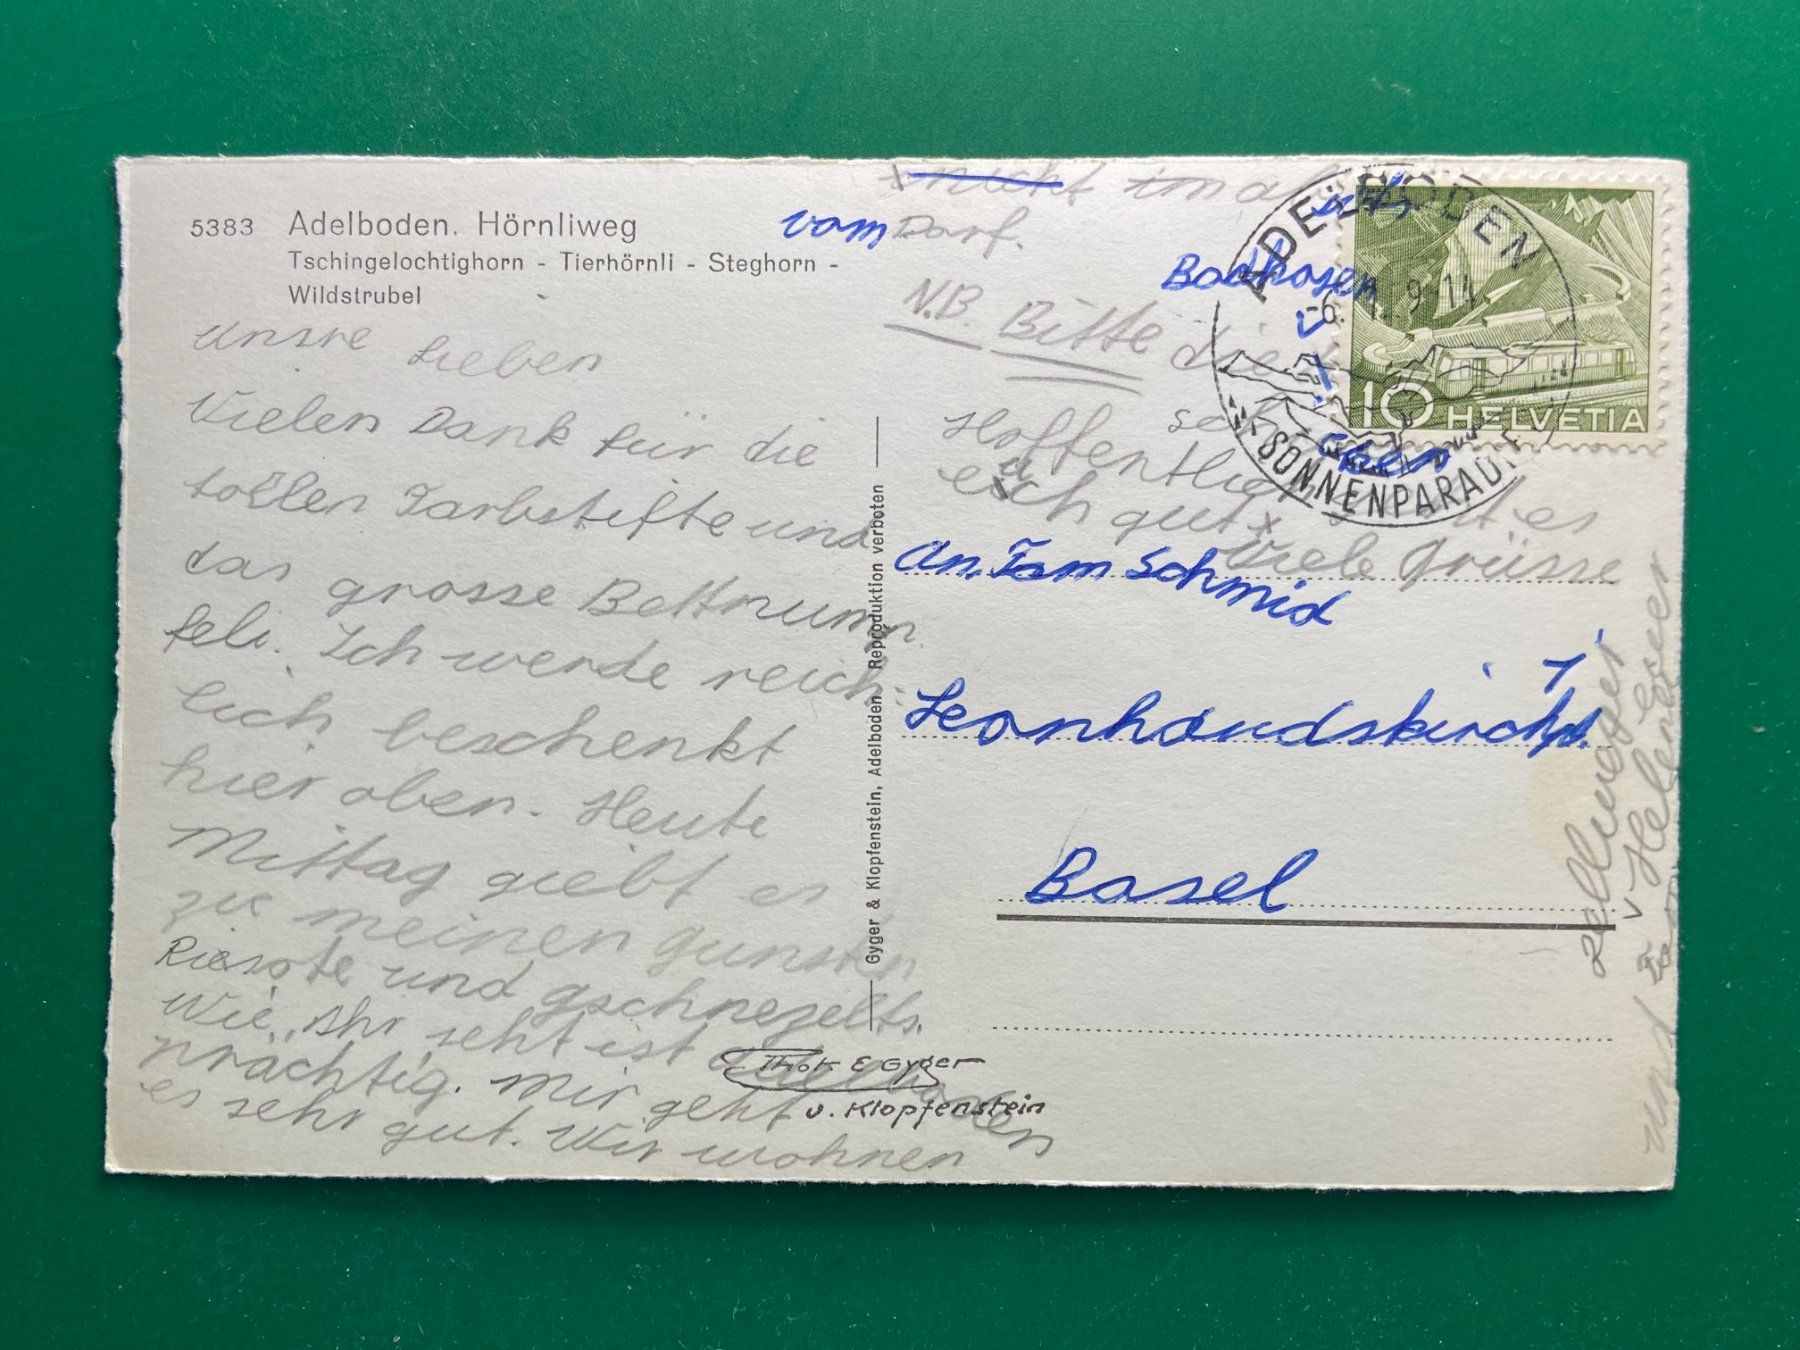 5383 Adelboden. Hörnliweg
Tschingelochtighorn - Tierhörnli - Steghorn -
Wildstrubel
Unsre Lieben
Vielen Dank für die
tollen Farbstifte und
das grosse Bettmumm
feli. Ich werde reich-
lich beschenkt
hier oben. Heute
Mittag giebt es
zu meinen gunsten
Riesote und gschnezelts.
Wie Ihr seht ist Adelboden
prächtig. Mir geht
es sehr gut. Wir wohnen
nicht im
vom Dorf.
Badhosen
N.B. Bitte die
Hoffentlich es
euch gut
Viele Grüsse
Zellweger
und Fam
v Helene
euer
An. Fam Schmid
Leonhardskirchpl. 1
Basel
Gyger & Klopfenstein, Adelboden Reproduktion verboten
Phot. E Gyger
u. Klopfenstein
ADELBODEN
-6. 9-14
SONNENPARAD
10 HELVETIA